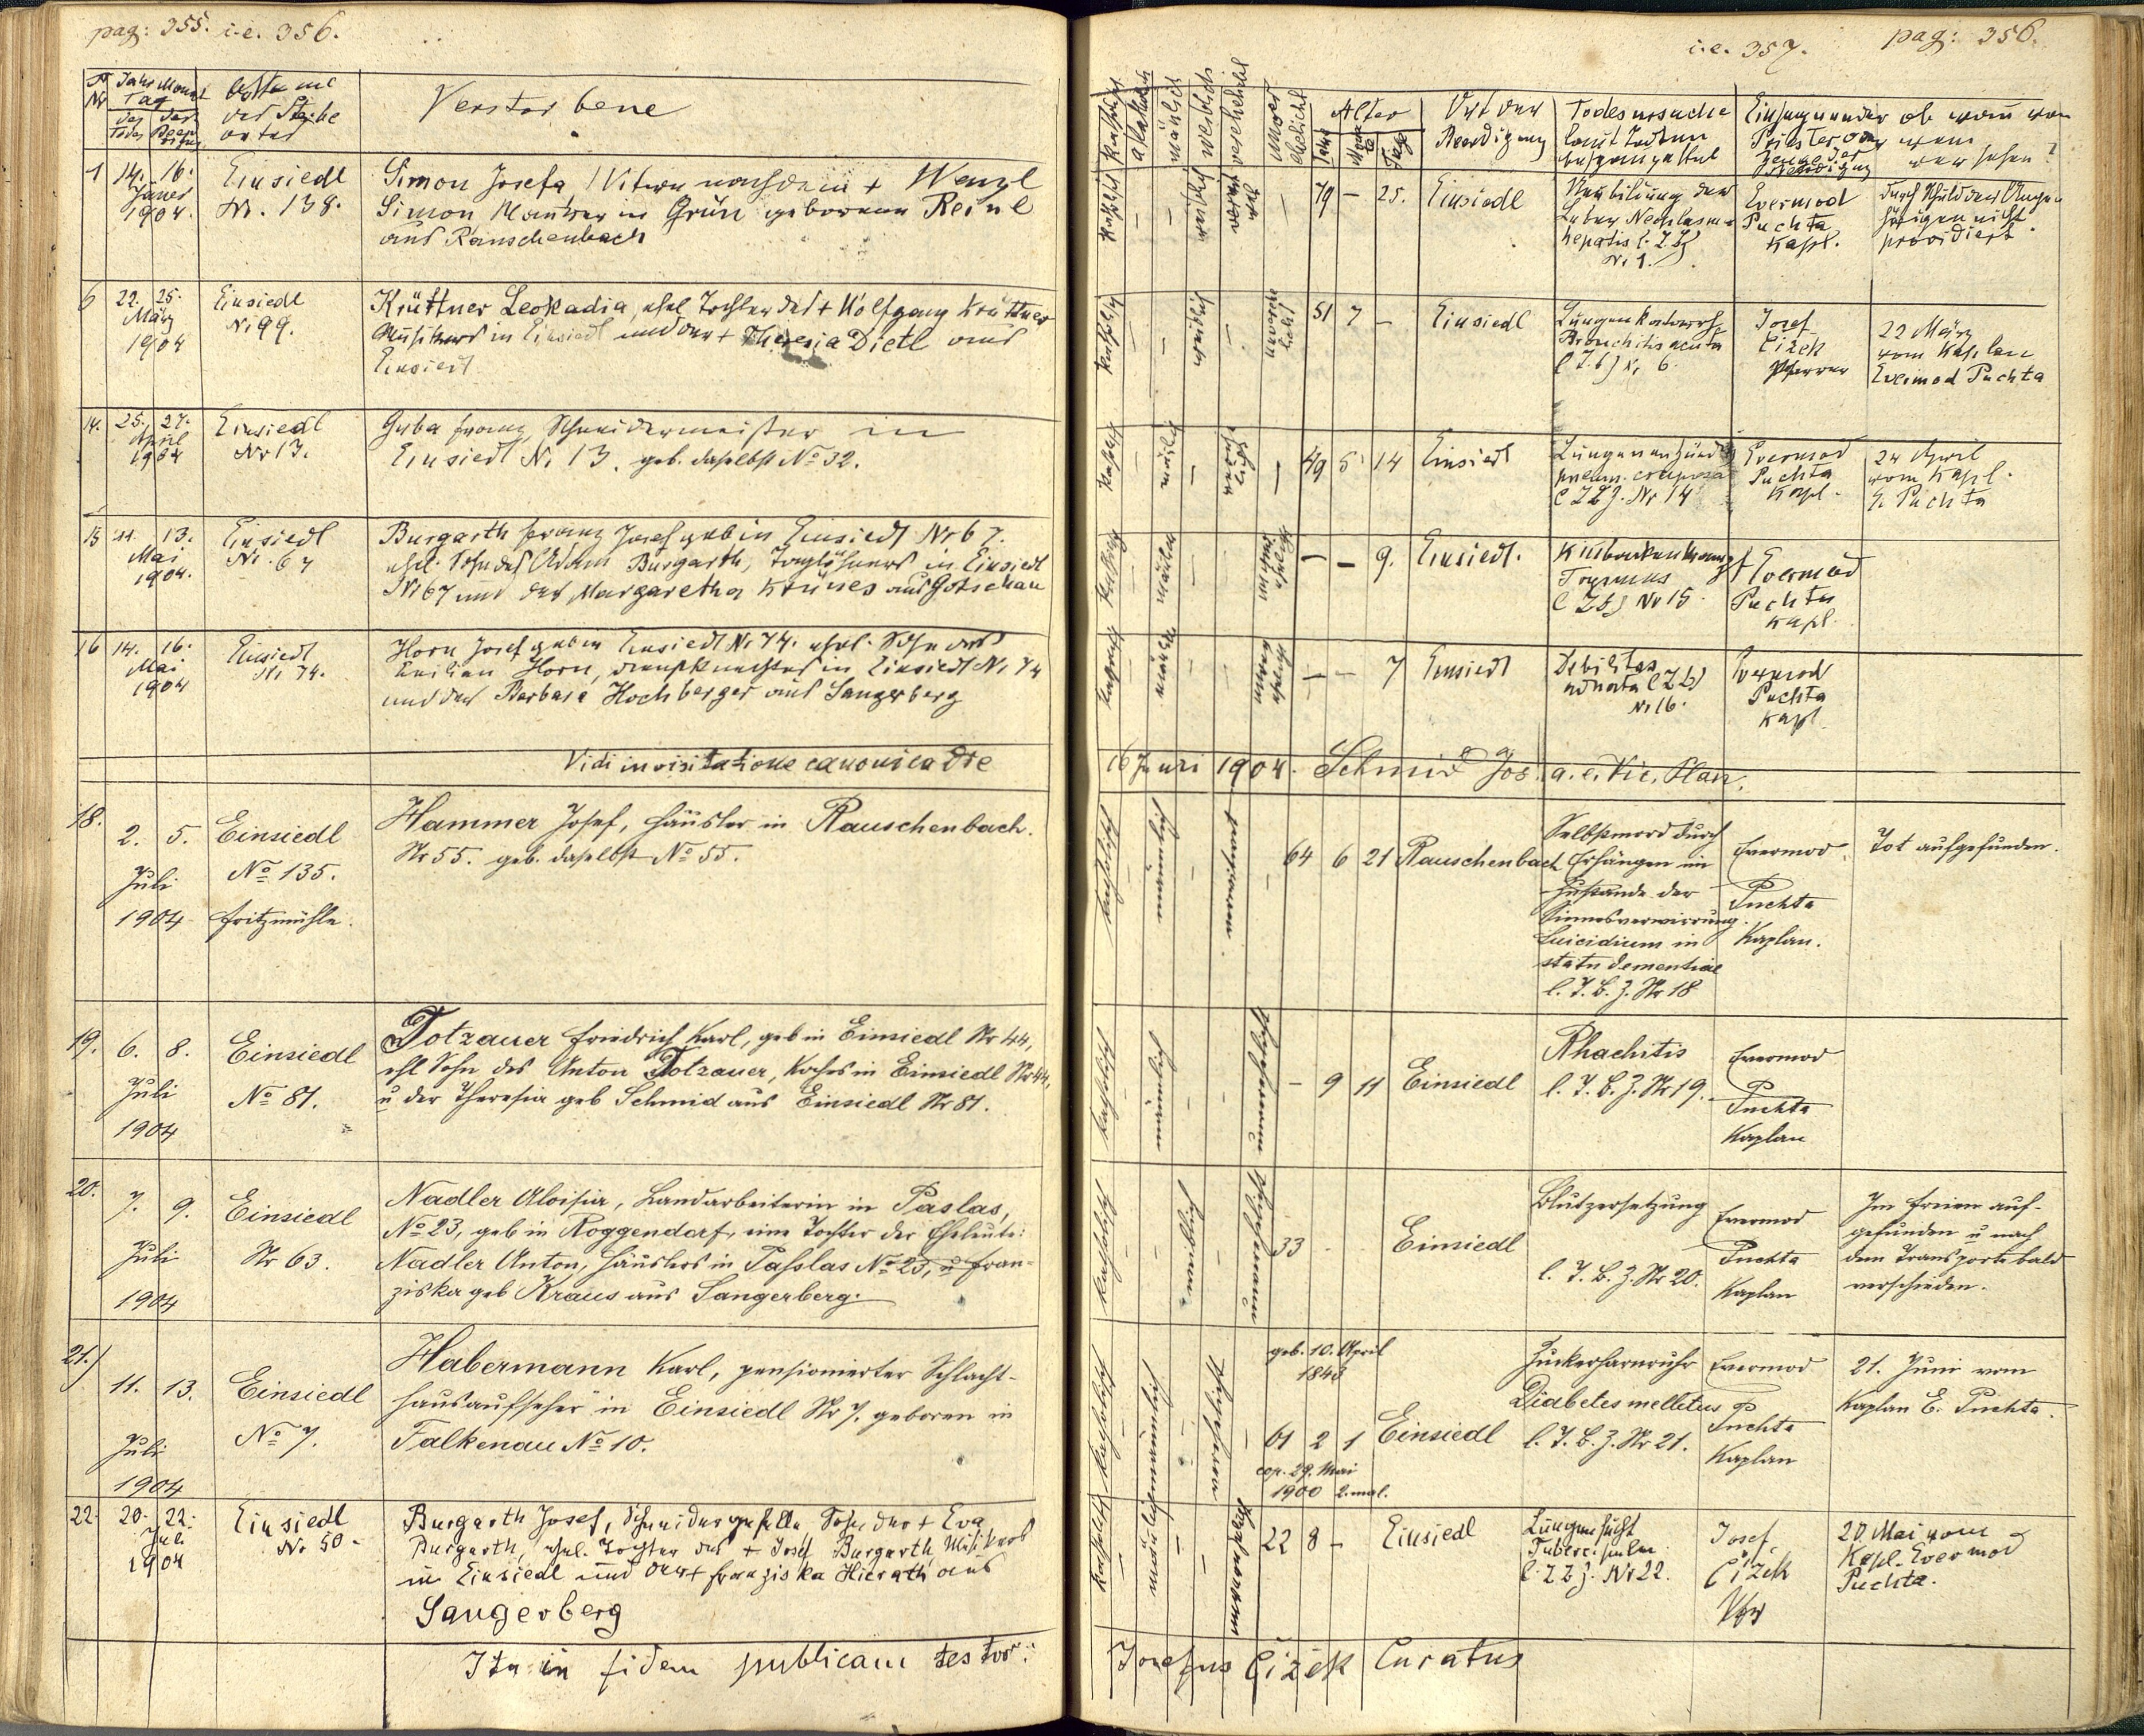 pag: 355. i.e. 356.
Nr Jahr Monat Tag
des Todes der Beerdigung
des Sterbeortes
Verstorbene
1 14. 16. Einsiedl
Jäner Nr. 138.
1904.
Simon Josefa, Witwe nach dem + Wenzl
Simon Maurer in Grün geborene Reinl
aus Rauschenbach
6 22. 25. Einsiedl
März Nr 99.
1904
Krüttner Leokadia, ehel Tochter des + Wolfgang Krüttner
Musikers in Einsiedl und der + Theresia Dietl aus
Einsiedl
14. 25. 27. Einsiedl
April Nr 13.
1904
Franz, Schneidermeister in
Einsiedl Nr 13. geb. daselbst No 32.
15 11. 13. Einsiedl
Mai Nr. 67
1904.
Burgarth Franz Josef geb in Einsiedl Nr 67.
ehel. Sohn des Adam Burgarth, Taglöhners in Einsiedl
Nr 67 und der Margaretha Krünes aus Gotschau
16 14. 16. Einsiedl
Mai Nr 74.
1904
Horn Josef geb in Einsiedl Nr 74. ehel. Sohn des
Horn, in Einsiedl Nr 74
und der Barbara Hochberger aus Sangerberg
Vidi in visitatione canonica die
18. 2. 5. Einsiedl
Juli No 135.
1904 Fritzmühle.
Hammer Josef, Häusler in Rauschenbach.
Nr 55. geb. daselbst No 55.
19. 6. 8. Einsiedl
Juli No 81.
1904
Totzauer Friedrich Karl, geb in Einsiedl Nr 44,
ehl Sohn des Anton Totzauer, Koches in Einsiedl Nr 44,
u der Theresia geb Schmid aus Einsiedl Nr 81.
20. 7. 9. Einsiedl
Juli Nr 63.
1904
Nadler Aloisia, Landarbeiterin in Paslas,
No 23, geb in Roggendorf, eine Tochter der Eheleute:
Nadler Anton, Häuslers in Passlas No 23, u Fran-
ziska geb Kraus aus Sangerberg.
21.) 11. 13. Einsiedl
Juli No 7.
1904
Habermann Karl, pensionierter Schlacht-
hausaufseher in Einsiedl Nr 7. geboren in
Falkenau No 10.
22. 20. 22. Einsiedl
Juli Nr 50.
1904
Burgarth Josef, Schneidergeselle Sohn der + Eva
Burgarth, ehel. Tochter des + Josef Burgarth, Musikers
in Einsiedl und der + Franziska Hierath aus
Sangerberg
Ita in fidem publicam testor:
i.e. 357. pag: 356.
Alter
Jahr Monate Tage
Ort der
Beerdigung
Todesursache
laut Todten
Einsegnender
Priester
ob wann von
wem
versehen?
katholisch verw. 79 - 25. Einsiedl
Neubildung der
Leber Neoplasma
hepatis l. T. B. Z
Nr 1.
Evermod
Puchta
Kapl.
durch Schuld der Ange-
hörigen nicht
providiert.
katholisch weiblich 51 7 - Einsiedl
Bronchitis acuta
Nr 6.
Josef
Čižek
Pfarrer
22 März
vom Kaplan
Evermod Puchta
49 5 14 Einsiedl
Lungenentzünd
pneum. crouposa
Nr 14
Evermod
Puchta
Kapl.
24 April
vom Kapl.
E. Puchta
- - 9. Einsiedl.
Trismus
Nr 15
Evermod
Puchta
Kapl.
- - 7 Einsiedl
Debilitas
adnata
Nr 16.
Evermod
Puchta
Kapl
16 Juni 1904. Schmid Jos. a. e. Vic. Plan.
katholisch männlich 64 6 21 Rauschenbach
Selbstmord durch
Erhängen im
Zustande der
Sinnesverwirrung.
Suicidium in
statu dementiae
l. T. B. Z. Nr 18
Evermod
Puchta
Kaplan.
Tot aufgefunden.
katholisch männlich - 9 11 Einsiedl
Rhachitis
l. T. B. Z. Nr 19.
Evermod
Puchta
Kaplan
katholisch weiblich 33 Einsiedl
Blutzersetzung
l. T. B. Z. Nr 20.
Evermod
Puchta
Kaplan
Im Freien auf-
gefunden u nach
dem Transporte bald
verschieden.
geb. 10. April
1843
katholisch männlich 61 2 1 Einsiedl
cop. 29. Mai
1900 2. mal.
Zuckerharnruhr
Diabetes mellitus
l. T. B. Z. Nr 21.
Evermod
Puchta
Kaplan
21. Juni vom
Kaplan E. Puchta.
katholisch männlich 22 8 - Einsiedl
Lungensucht
Tuberc. pulm.
Nr 22.
Josef
Čižek
Pfr
20 Mai vom
Kapl. Evermod
Puchta.
Josefus Čižek Curatus